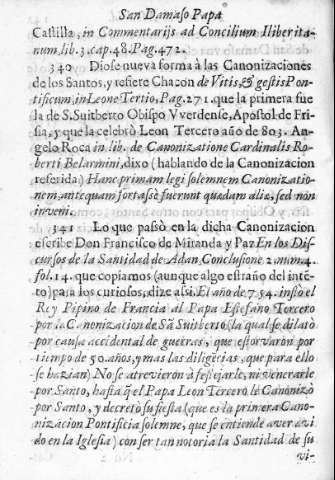 San Damaso Papa
Castilla, in Commentarijs ad Concilium Iliberita-
num, lib. 3. cap. 48. Pag. 472.
340 Diose nueva forma à las Canonizaciones
de los Santos, y refiere Chacon de Vitis, & gestis Pon-
tificum, in Leone Tertio, Pag. 271. que la primera fue
la de S. Suitberto Obispo Vverdense, Apostol de Fri-
sia, y que la celebrò Leon Tercero año de 803. An-
gelo Roca in lib. de Canonizatione Cardinalis Ro-
berti Belarmini, dixo (hablando de la Canonizacion
referida) Hanc primam legi solemnem Canonizatio-
nem, antequam fortasse fuerunt quædam aliæ, sed non
inveni.
341 Lo que passò en la dicha Canonizacion
escribe Don Francisco de Miranda y Paz En los Dis-
cursos de la Santidad de Adan, Conclusione 2. num. 4.
fol. 14. que copiamos (aunque algo estraño del intẽ-
to) para los curiosos, dize assi. El año de 754. instò el
Rey Pipino de Francia al Papa Estefano Tercero
por la Canonizacion de Sã Suitberto (la qual se dilatò
por causa accidental de guerras, que estorvaron por
tiempo de 50. años, y mas las diligẽcias, que para ello
se hazian) No se atrevieron à festejarle, ni venerarle
por Santo, hasta q̃ el Papa Leon Tercero le Canonizò
por Santo, y decretò su fiesta (que es la primera Cano-
nizacion Pontificia solemne, que se entiende aver avi-
do en la Iglesia) con ser tan notoria la Santidad de su
vi-